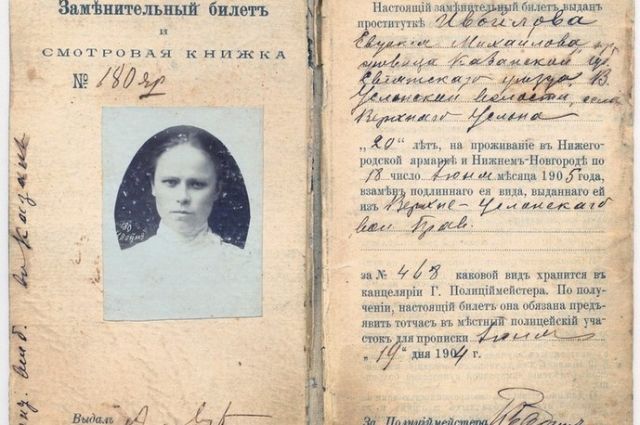 Замѣнительный билетъ
и
СМОТРОВАЯ КНИЖКА
№ 180 яр
Выдалъ
Настоящій замѣнительный билетъ выданъ
проституткѣ Ивойлова
Евгенія Михайлова
Казанской
Свіяжскаго уѣзда, В.
Услонской волости, села
Верхняго Услона
„20“ лѣтъ, на проживаніе въ Нижего-
родской ярмаркѣ и Нижнемъ-Новгородѣ по
18 число Іюня мѣсяца 1905 года,
взамѣнъ подлиннаго ея вида, выданнаго ей
изъ Верхне-Услонскаго
вол. Прав.
за № 468 каковой видъ хранится въ
канцеляріи Г. Полиціймейстера. По полу-
ченіи, настоящій билетъ она обязана предъ-
явить тотчасъ въ мѣстный полицейскій уча-
стокъ для прописки Іюня
„19“ дня 1904 г.
За Полиціймейстера